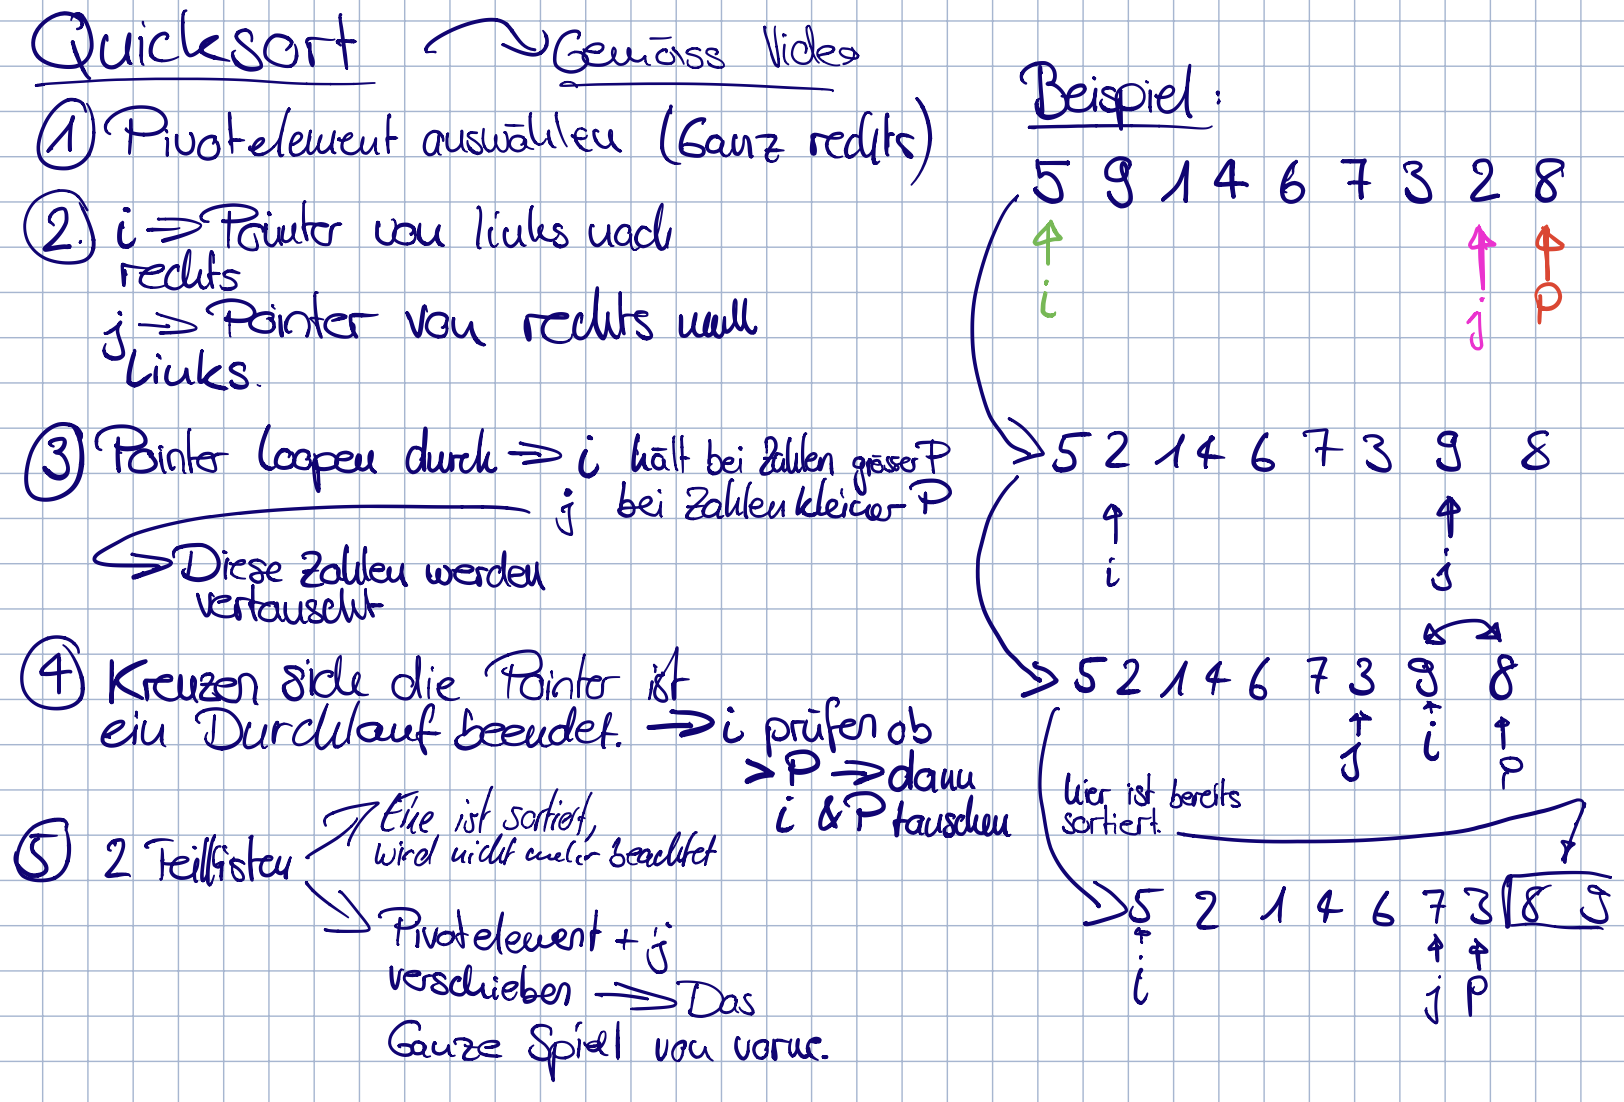 Quicksort
Gemäss Video
① Pivotelement auswählen (Ganz rechts)
②. i ⇒ Pointer von links nach
rechts
j ⇒ Pointer von rechts nach
Links.
③ Pointer loopen durch ⇒ i hält bei Zahlen grösser P
j bei Zahlen kleiner P
→ Diese Zahlen werden
vertauscht
④ Kreuzen sich die Pointer ist
ein Durchlauf beendet. → i prüfen ob
> P ⇒ dann
i & P tauschen
⑤ 2 Teillisten
Eine ist sortiert,
wird nicht mehr beachtet
Pivotelement + j
verschieben ⇒ Das
Ganze Spiel von vorne.
Beispiel:
5 9 1 4 6 7 3 2 8
i j P
5 2 1 4 6 7 3 9 8
i j
5 2 1 4 6 7 3 9 8
j i P
hier ist bereits
sortiert.
5 2 1 4 6 7 3 8 9
i j P